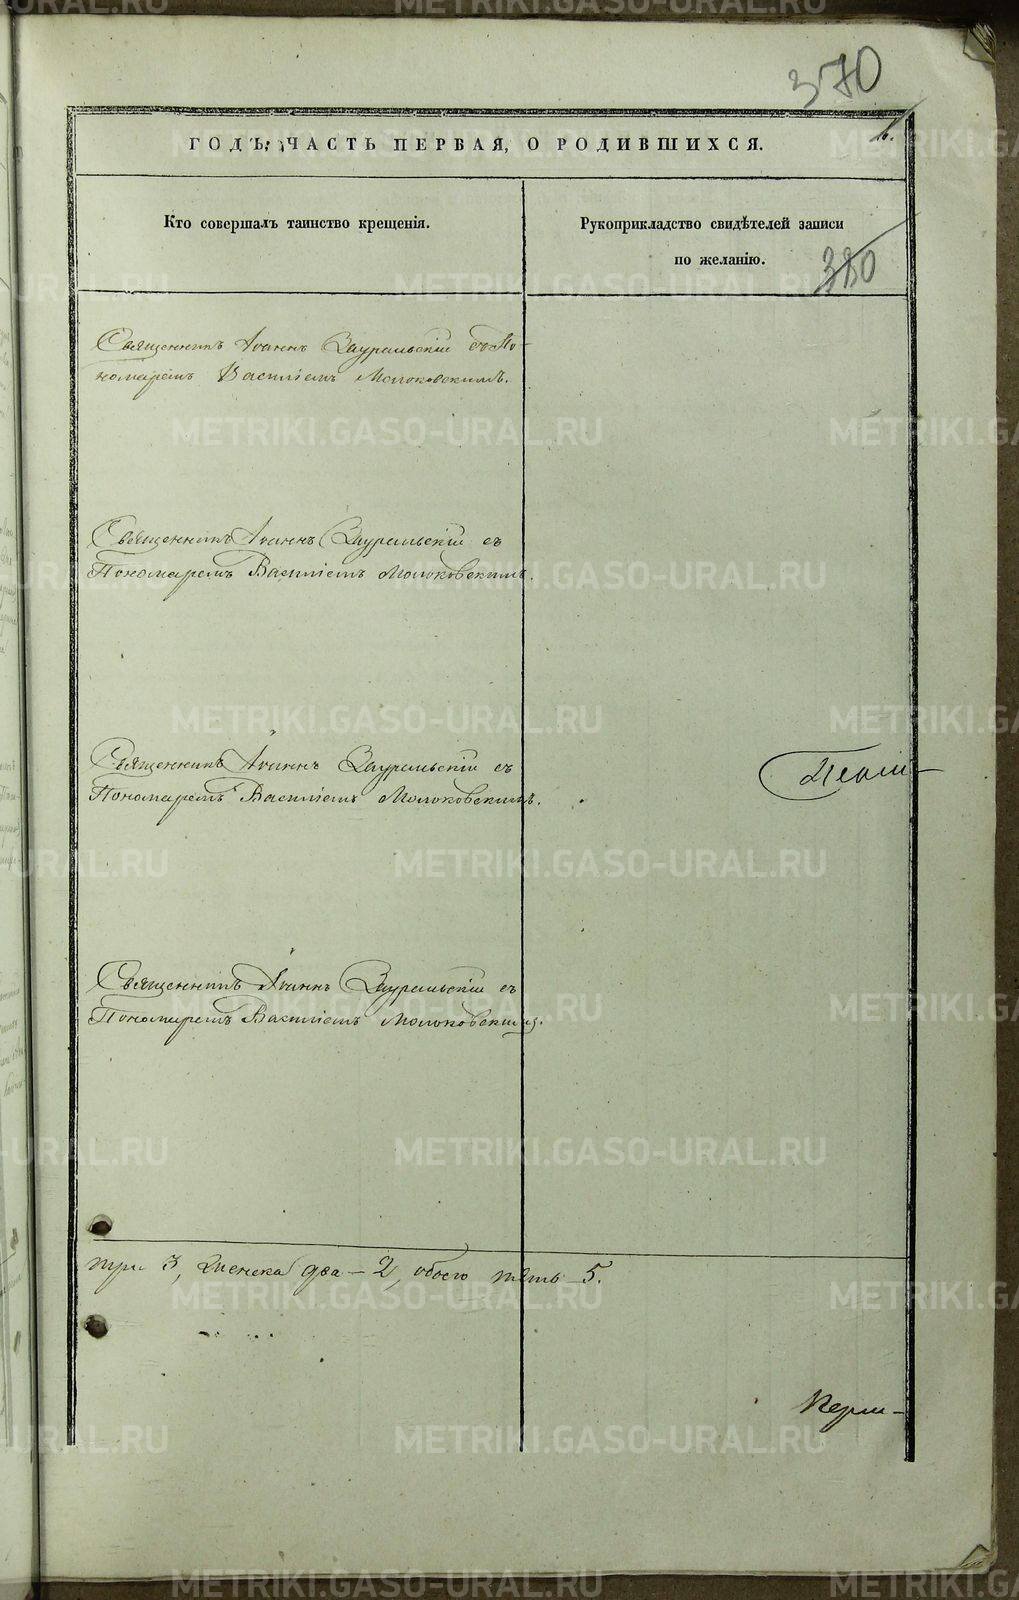 370
ГОДЪ. ЧАСТЬ ПЕРВАЯ, О РОДИВШИХСЯ.
Кто совершалъ таинство крещенія.
Рукоприкладство свидѣтелей записи
по желанію.
380
Священникъ Іоаннъ Зауральскій съ По-
номаремъ Василіемъ Молоковскимъ.
Священникъ Іоаннъ Зауральскій съ
Пономаремъ Василіемъ Молоковскимъ.
Священникъ Іоаннъ Зауральскій съ
Пономаремъ Василіемъ Молоковскимъ.
Священникъ Іоаннъ Зауральскій съ
Пономаремъ Василіемъ Молоковскимъ.
три 3, женска два – 2, обоего пять – 5.
METRIKI.GASO-URAL.RU